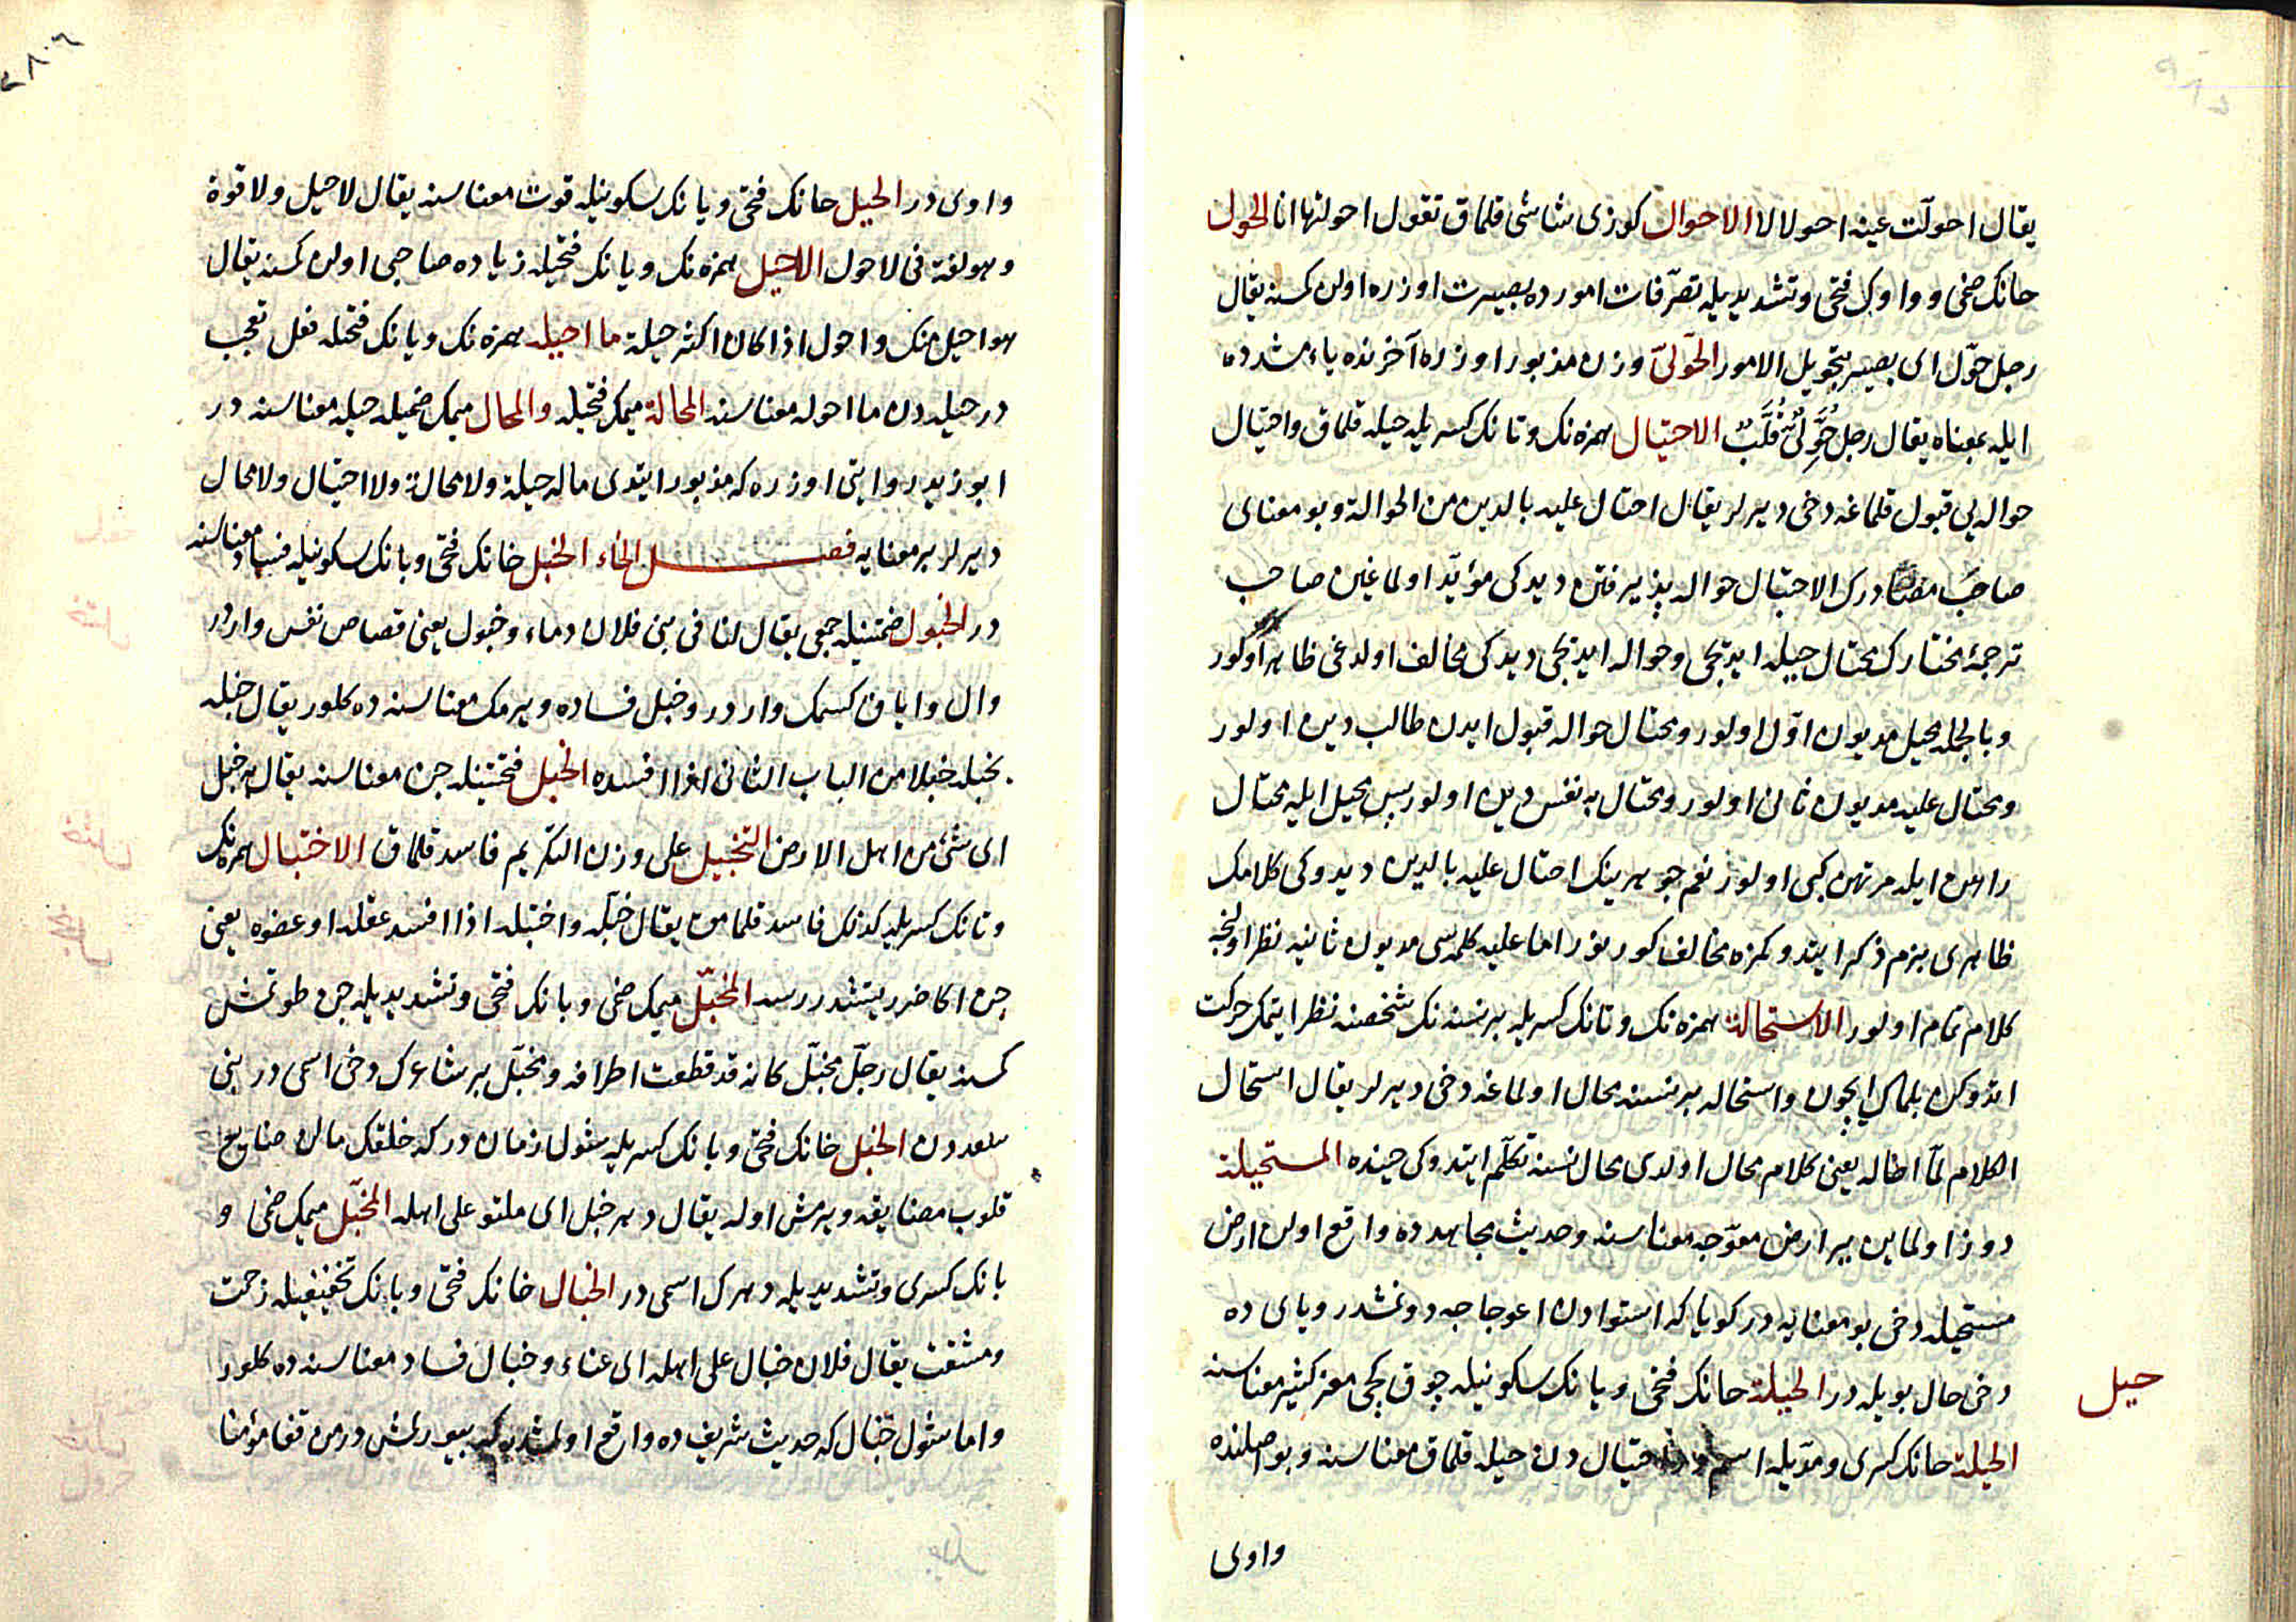 يقال احولّت عينه احولالا الاحوال كوزى شاشى قلماق تقول احولتها انا الحول
حانك ضمى وواوك فتحى وتشديديله تصرّفات امورده بصيرت اوزره اولن كمسنه يقال
رجل حوّل اى بصير بتحويل الامور الحوّلىّ وزن مذبور اوزره آخرنده ياء مشدده
ايله بمعناه يقال رجل حُوَّلىٌّ قُلَّبٌ الاحتيال همزه نك وتانك كسريله حيله قلماق واحتيال
حواله يى قبول قلماغه دخى ديرلر يقال احتال عليه بالدين من الحوالة وبو معناى
صاحب مصادرك الاحتيال حواله پذيرفتن ديدكى مؤيّد اولماغين صاحب
ترجمۀ مختارك محتال حيله ايديجى وحواله ايديجى ديدكى مخالف اولدغى ظاهر اوكور
وبالجمله محيل مديون اوّل اولور ومحتال حواله قبول ايدن طالب دين اولور
ومحتال عليه مديون ثانى اولور ومحتال به نفس دين اولور پس محيل ايله محتال
راهن ايله مرتهن كبى اولور نعم جوهرينك احتال عليه بالدين ديدوكى كلامك
ظاهرى بزم ذكر ايتدوكمزه مخالف كورينور اما عليه كلمه سى مديون ثانيه نظر اولنجه
كلام تمام اولور الاستحالة همزه نك وتانك كسريله بر نسنه نك شخصنه نظر ايتمك حركت
ايتدوكن بلمك ايچون واستحاله بر نسنه محال اولماغه دخى ديرلر يقال استحال
الكلام لمّا احاله يعنى كلام محال اولدى محال نسنه تكلّم ايتدوكى حينده المستحيلة
دوز اولماين ير ارض معوّجه معناسنه وحديث مجاهدده واقع اولن ارض
مستحيله دخى بو معنايه در كويا كه استوادن اعوجاجه دونمشدر وياى ده
دخى حال بويله در الحيلة حانك فتحى ويانك سكونيله چوق كچى معز كثير معناسنه
حيل
الحيلة حانك كسرى ومدّيله اسمدر احتيال دن حيله قلماق معناسنه وبو اصلنده
واوى
واوى در الحيل حانك فتحى ويانك سكونيله قوت معناسنه يقال لا حيل ولا قوة
وهو لغة فى لا حول الاحيل همزه نك ويانك فتحيله زياده صاحبى اولن كمسنه يقال
هو احيل منك واحول اذا كان اكثر حيلة ما احيله همزه نك ويانك فتحله فعل تعجب
در حيله دن ما احوله معناسنه المحالة ميمك فتحيله والمحال ميمك ضميله حيله معناسنه در
ابو زيد روايتى اوزره كه مذبور ايتدى ماله حيلة ولا محالة ولا احتيال ولا محال
ديرلر بر معنايه فصل الخاء الخبل خانك فتحى وبانك سكونيله فساد معناسنه
در الخبول ضمتينله جمعى يقال لنا فى بنى فلان دماء وخبول يعنى قصاص نفس واردر
وال واياق كسمك واردر وخبل فساده ويرمك معناسنه ده كلور يقال خبله
يخبله خبلا من الباب الثانى اذا افسده الخبل فتحتينله جن معناسنه يقال به خبل
اى شئ من اهل الارض التخبيل على وزن التكريم فاسد قلماق الاختبال همزه نك
وتانك كسريله كذلك فاسد قلمامن يقال خبّله واختبله اذا افسد عقله او عضوه يعنى
جن اكا ضرر يتشدررسه المخبّل ميمك ضمى وبانك فتحى وتشديديله جن طوتمش
كمسنه يقال رجل مخبّل كانه قد قطعت اطرافه ومخبّل بر شاعرك دخى اسمى در بنى
سعددن الخبل خانك فتحى وبانك كسريله شول زمان در كه خلقك مالن ضايع
قلوب مضايقه ويرمش اوله يقال دهر خبل اى ملتو على اهله المخبّل ميمك ضمى و
بانك كسرى وتشديديله دهرك اسمى در الخبال خانك فتحى وبانك تخفيفيله زحمت
ومشقت يقال فلان خبال على اهله اى عناء وخبال فساد معناسنه ده كلور
واما شول خبال كه حديث شريفده واقع اولمشدر كه بيورلمش در من قفا مؤمنا